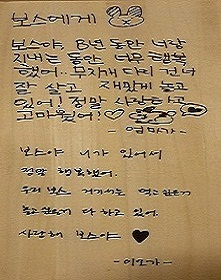 보스에게
보스야, 8년 동안 나랑
지내는 동안 너무 행복
했어.. 무지개 다리 건너
잘 살고 재밌게 놀고
있어! 정말 사랑하고
고마웠어!
- 엄마가 -
보스야 니가 있어서
정말 행복했어.
우리 보스 거기서는 먹고 싶은거
놀고 싶은거 다 하고 있어.
사랑해 보스야
- 이모가 -